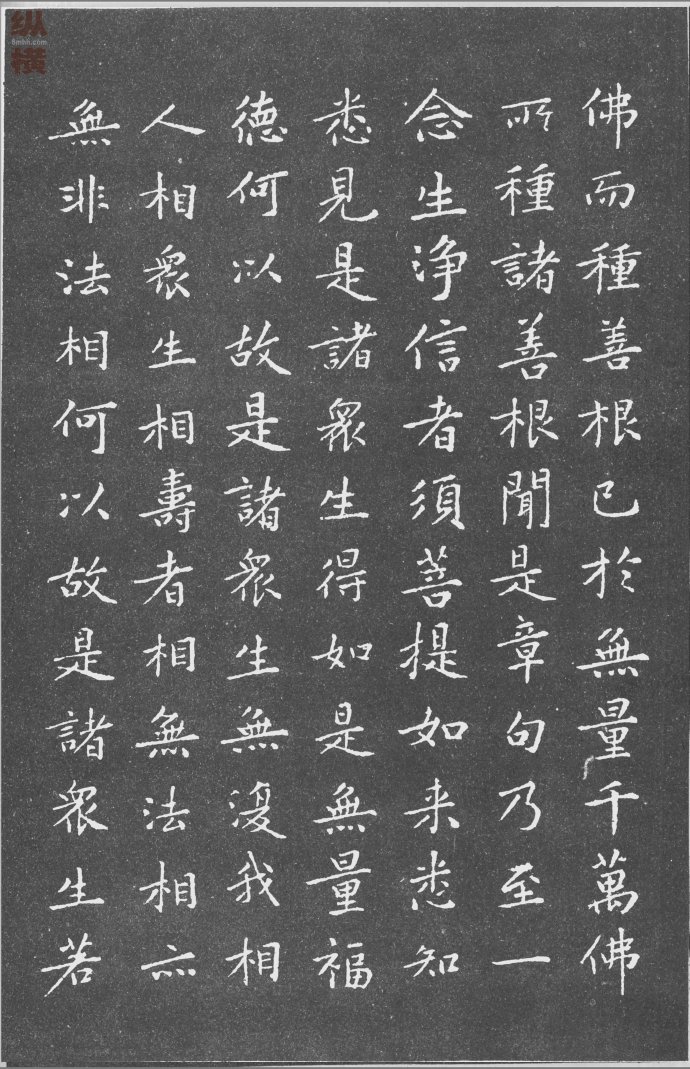 佛而種善根已於無量千萬佛
所種諸善根聞是章句乃至一
念生淨信者須菩提如来悉知
悉見是諸眾生得如是無量福
德何以故是諸眾生無復我相
人相眾生相壽者相無法相亦
無非法相何以故是諸眾生若
纵横
8mhh.com